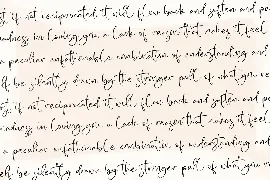 if not reciprocated it will flow back and soften and pe
madness in loving you a lack of reason that makes it feel
a peculiar unfathomable combination of understanding and
be silently drawn by the stronger pull of what you
if not reciprocated it will flow back and soften and pe
madness in loving you a lack of reason that makes it feel
a peculiar unfathomable combination of understanding and
be silently drawn by the stronger pull of what you